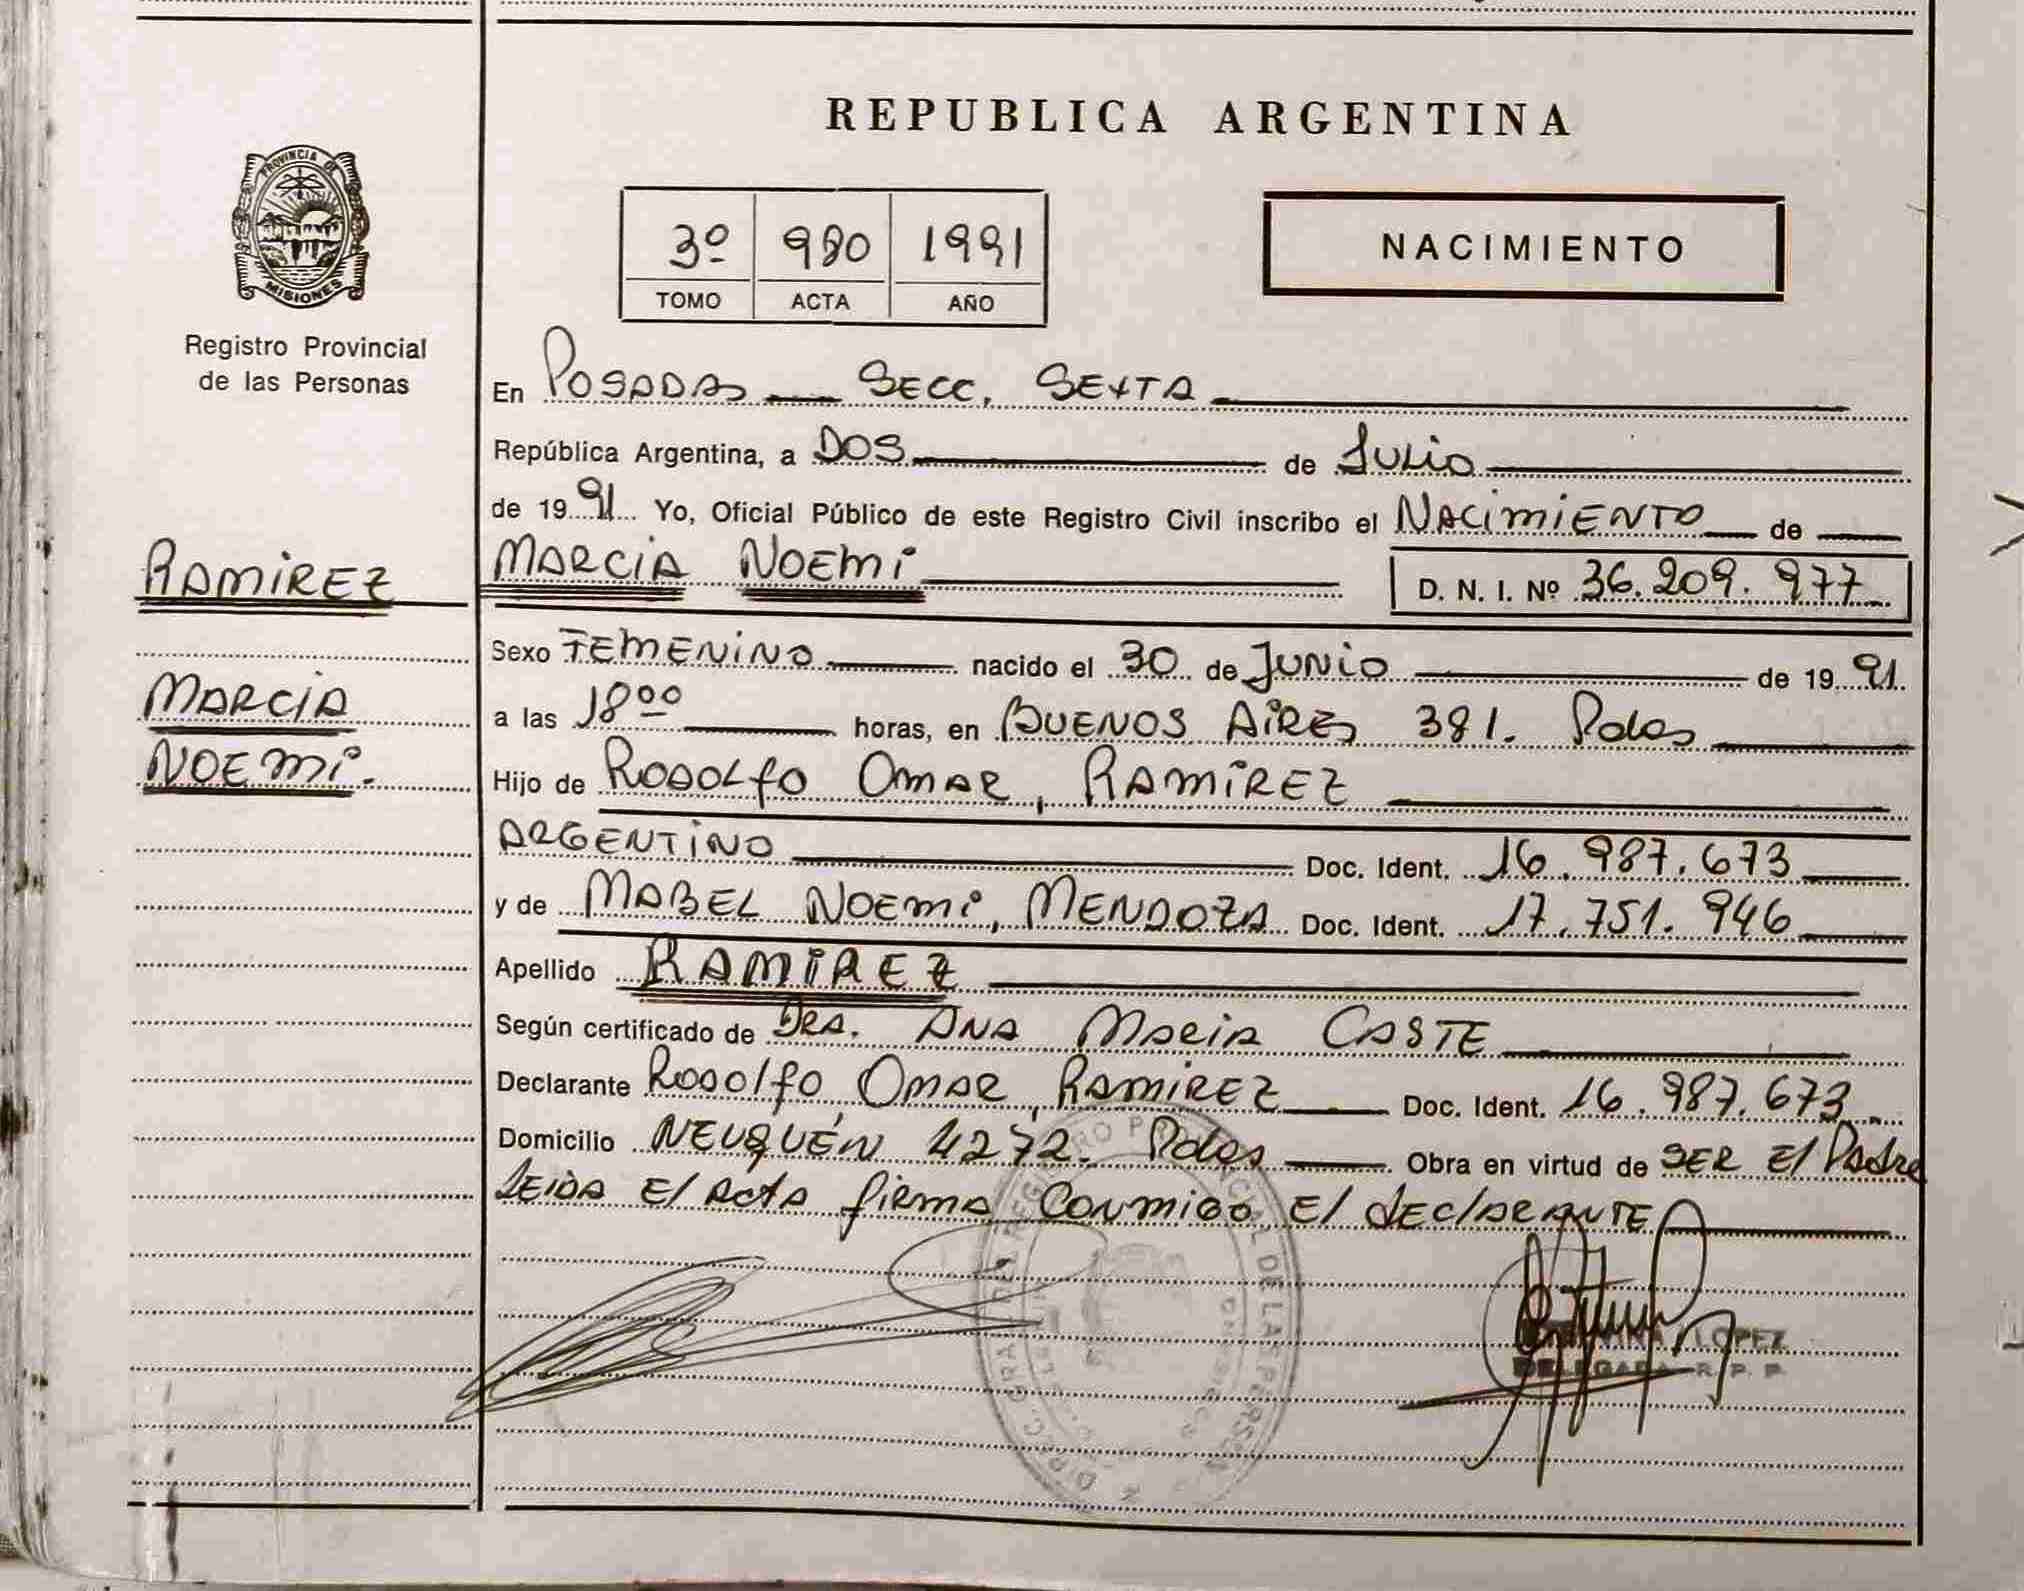 REPUBLICA ARGENTINA
PROVINCIA DE
MISIONES
Registro Provincial
de las Personas
3º 980 1991
TOMO ACTA AÑO
NACIMIENTO
En POSADAS SECC. SEXTA
República Argentina, a DOS de JULIO
de 1991 Yo, Oficial Público de este Registro Civil inscribo el NACIMIENTO de
RAMIREZ
MARCIA NOEMI D. N. I. Nº 36.209.977
Sexo FEMENINO nacido el 30 de JUNIO de 1991
MARCIA
a las 18oo horas, en BUENOS AIRES 381. Pdas
NOEMI.
Hijo de RODOLFO OMAR, RAMIREZ
ARGENTINO Doc. Ident. 16.987.673
y de MABEL NOEMI, MENDOZA Doc. Ident. 17.751.946
Apellido RAMIREZ
Según certificado de DRA. ANA MARIA CASTE
Declarante RODOLFO OMAR, RAMIREZ Doc. Ident. 16.987.673
Domicilio NEUQUÉN 4272. Pdas Obra en virtud de SER El Padre
LEIDA El Acta firma CONMIGO El dEClARANTE
LOPEZ
DELEGADA R. P. P.
DIREC. GRAL DEL REGISTRO PROVINCIAL DE LA PERSONAS